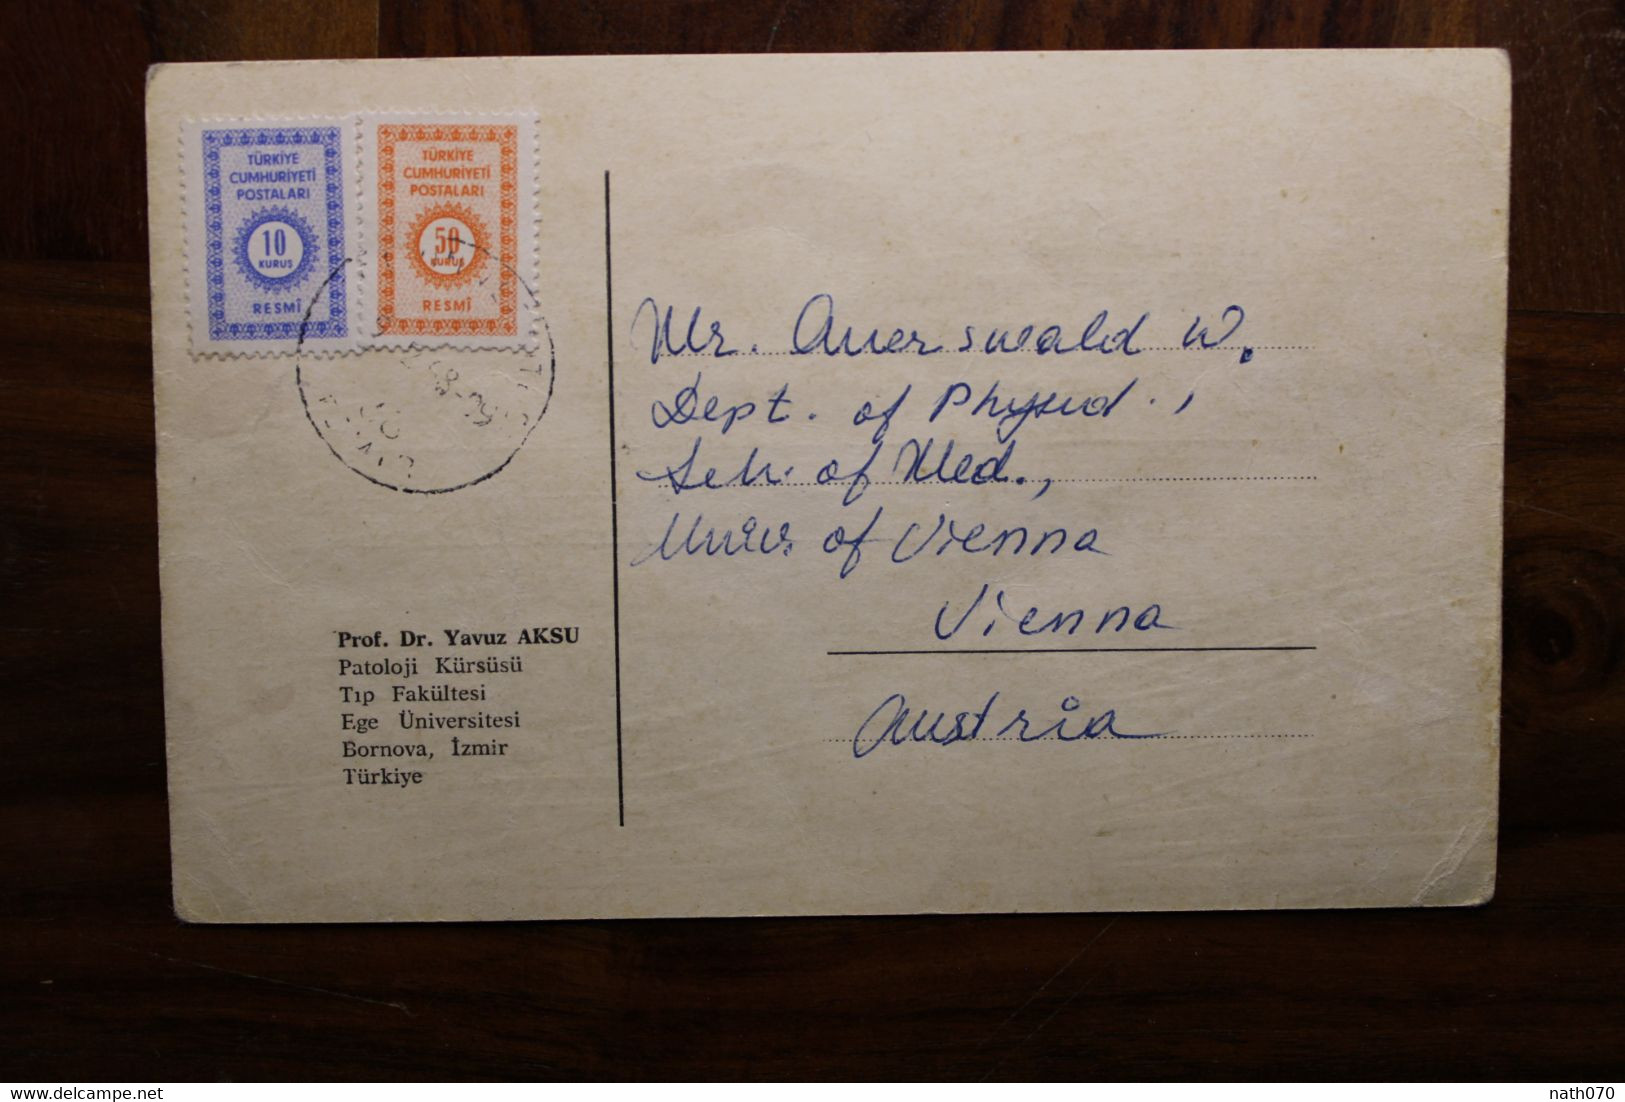 TÜRKİYE
CUMHURİYETİ
POSTALARI
10
KURUŞ
RESMÎ
TÜRKİYE
CUMHURİYETİ
POSTALARI
50
KURUŞ
RESMÎ
Mr. Auerswald W.
Dept. of
Sch. of Med.,
Univ. of Vienna
Vienna
Austria
Prof. Dr. Yavuz AKSU
Patoloji Kürsüsü
Tıp Fakültesi
Ege Üniversitesi
Bornova, İzmir
Türkiye
delcampe.net
nath070